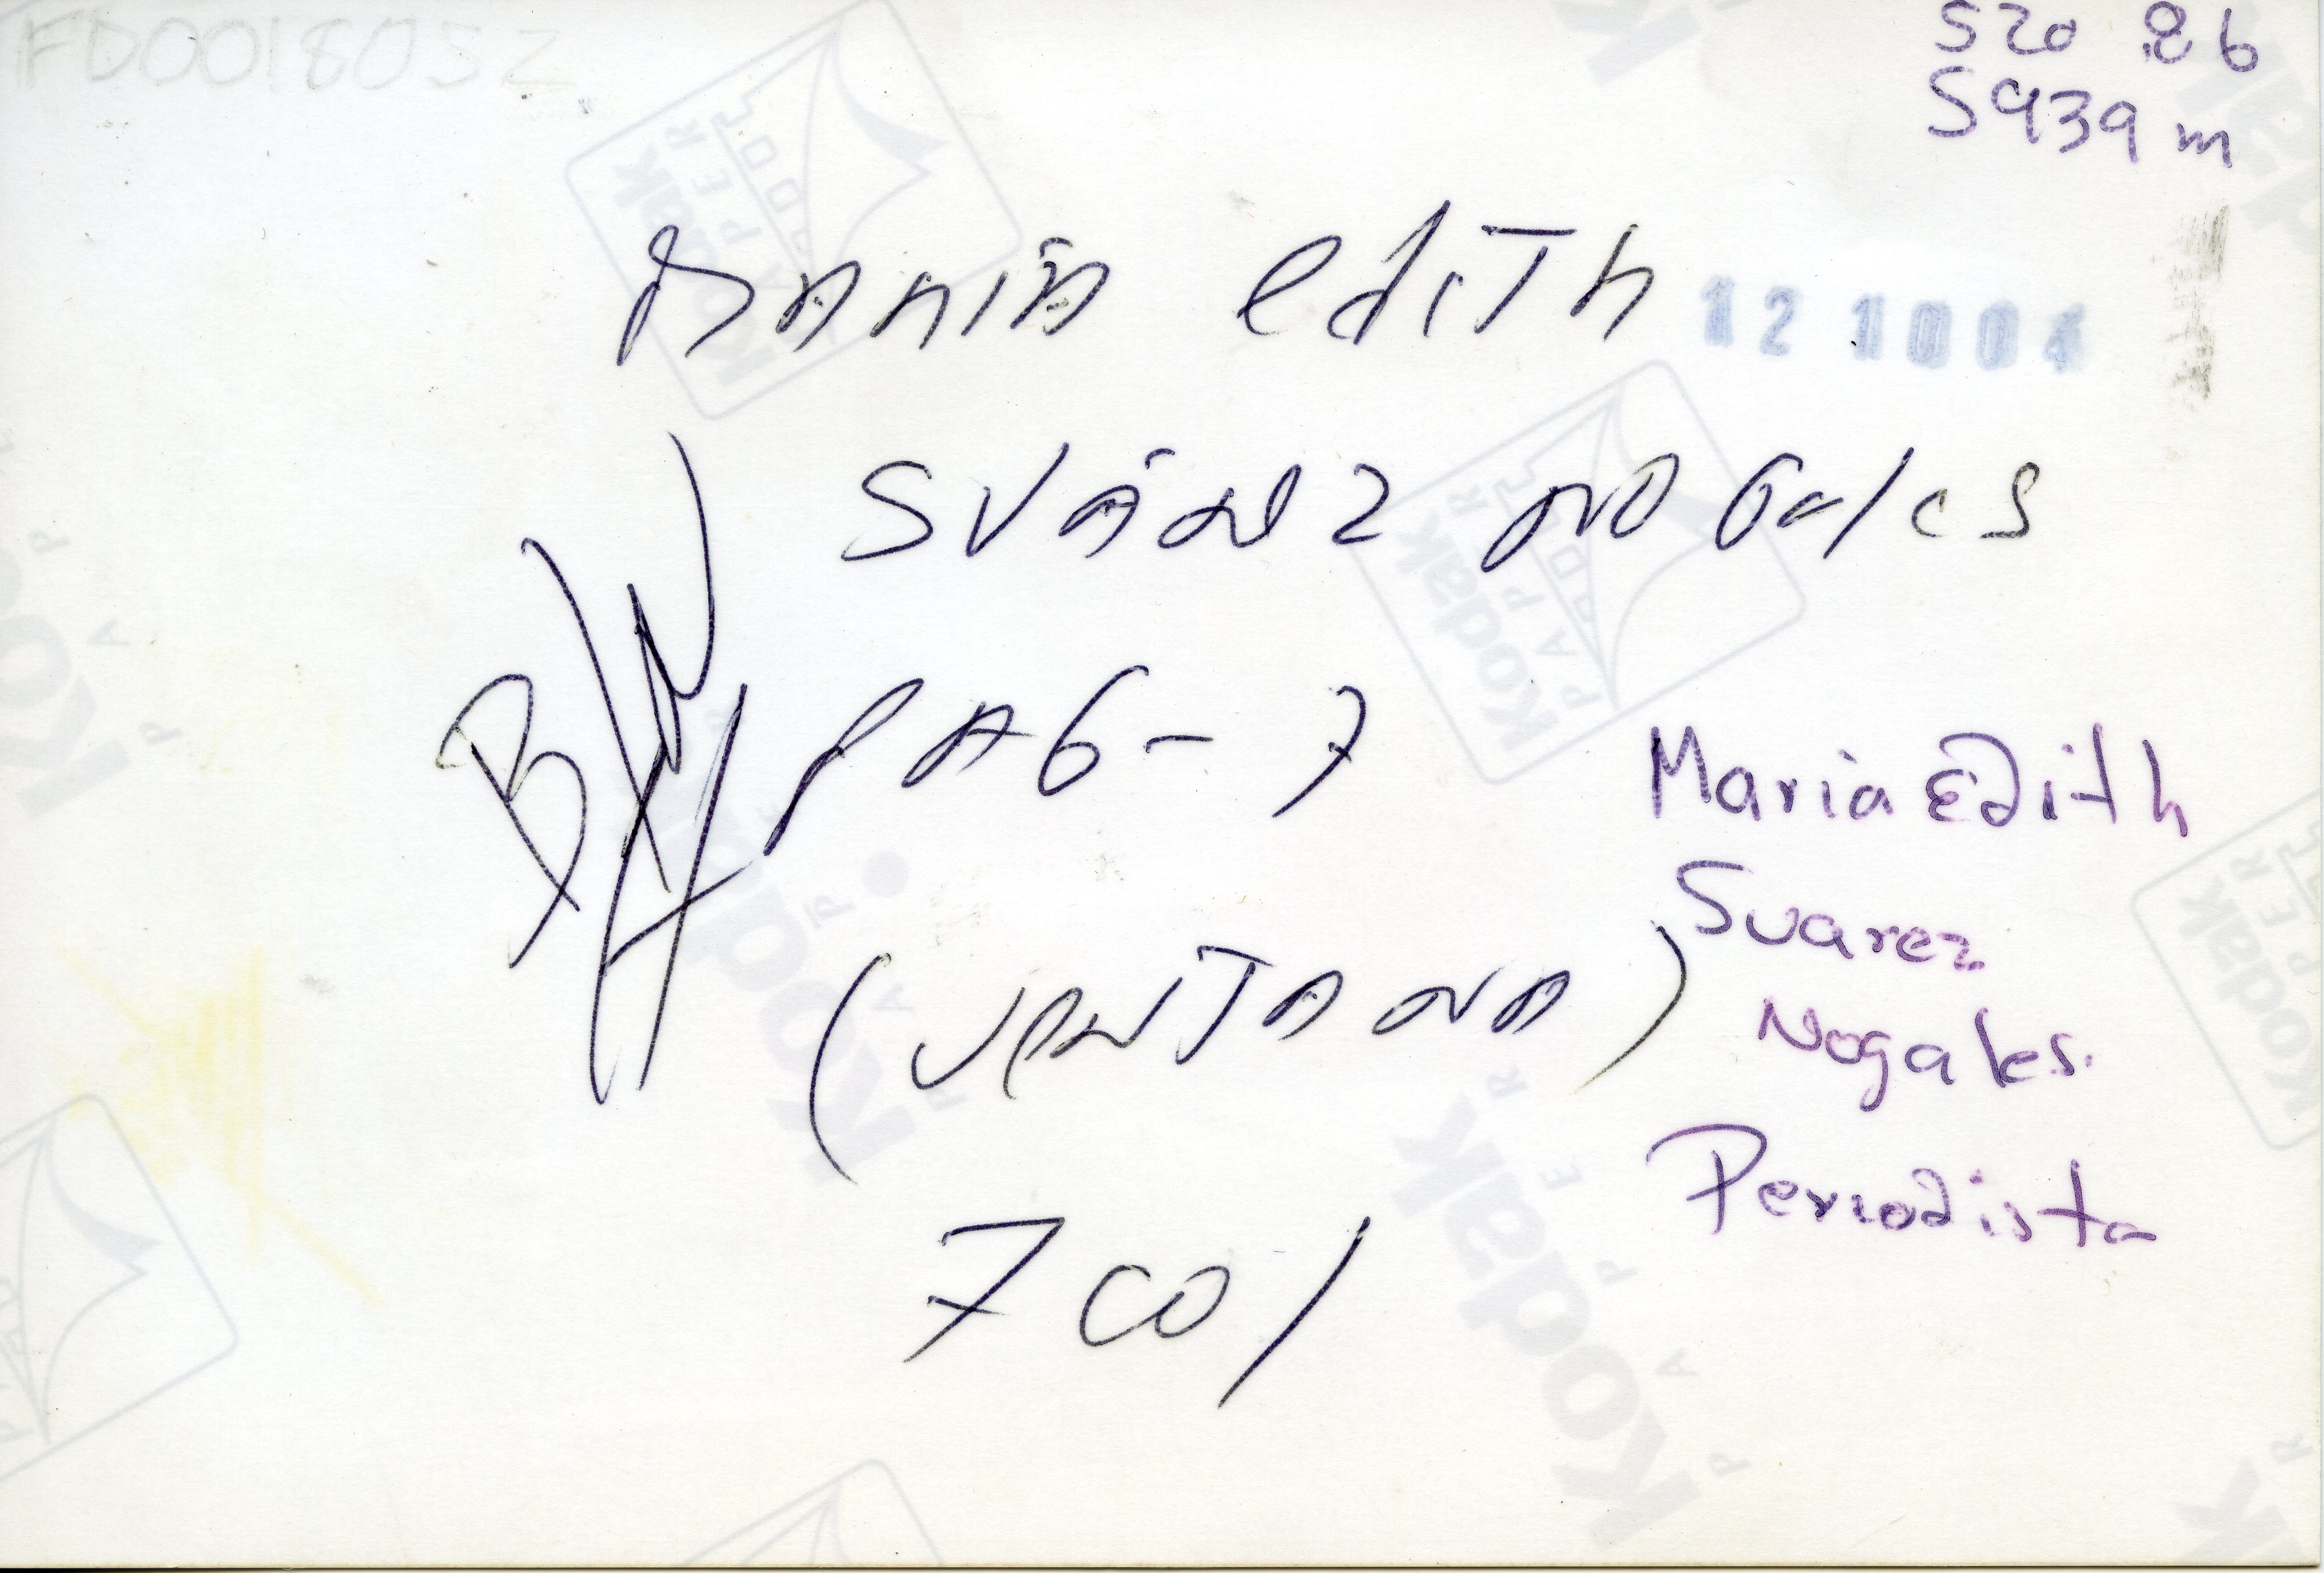 FD0018052
520 86
S939m
MARIA edith
121004
SUÁREZ NOGales
B/N
PAG-7
(VENTANA)
7 COl
Maria Edith
Suarez
Nogales.
Periodista
Kodak
PAPER